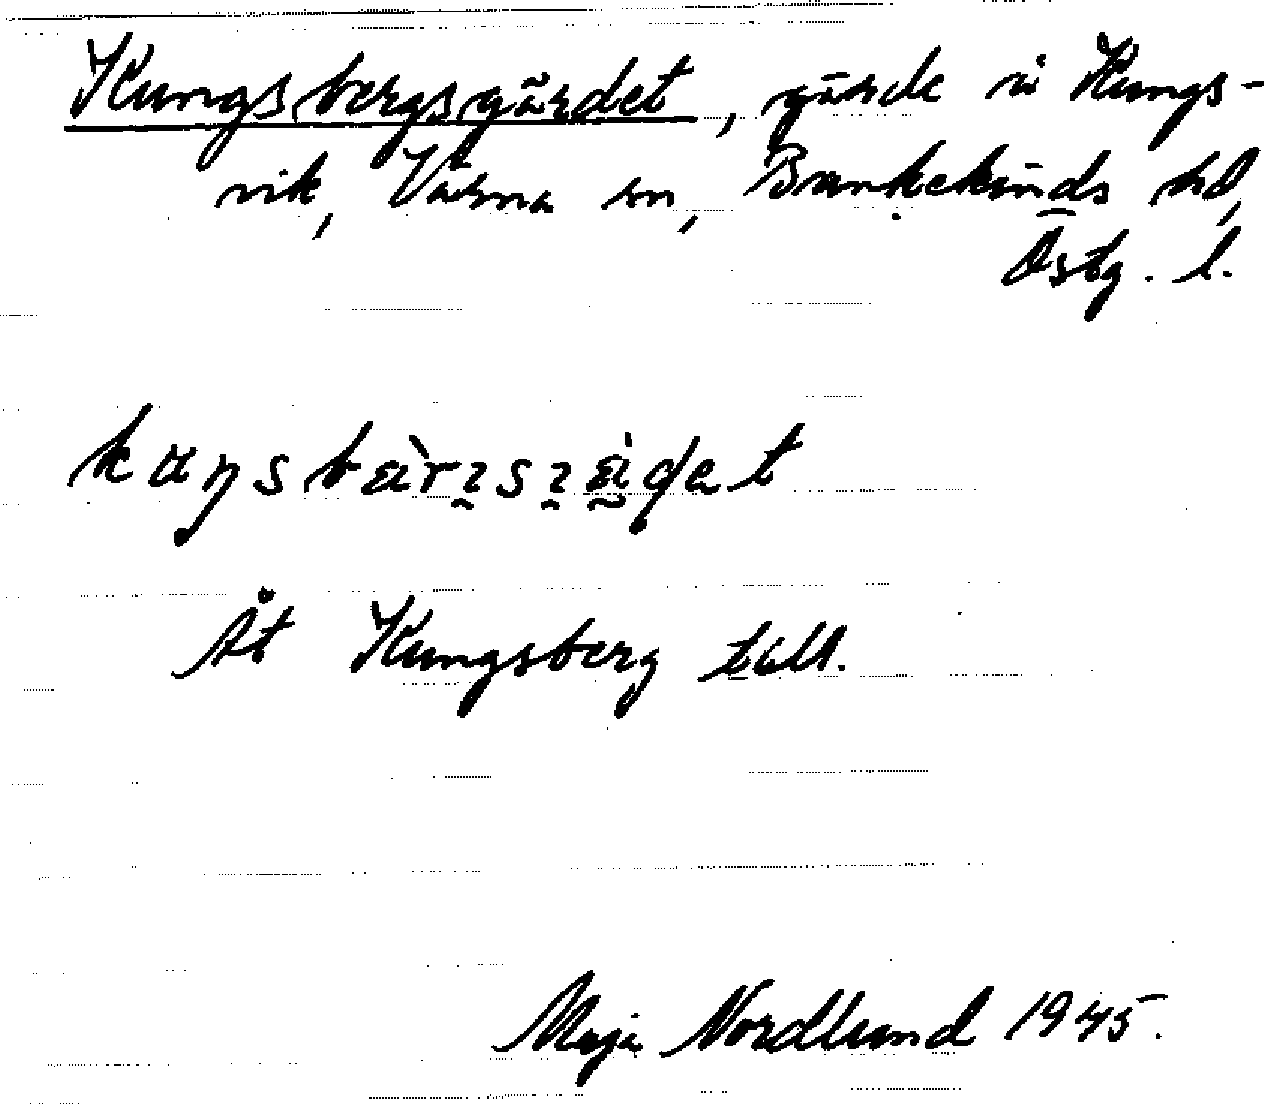 Kungsbergsgärdet, gärde i Kungs-
vik, Värna sn, Bankekinds hd,
Östg. l.
Åt Kungsberg till.
Maja Nordlund 1945.